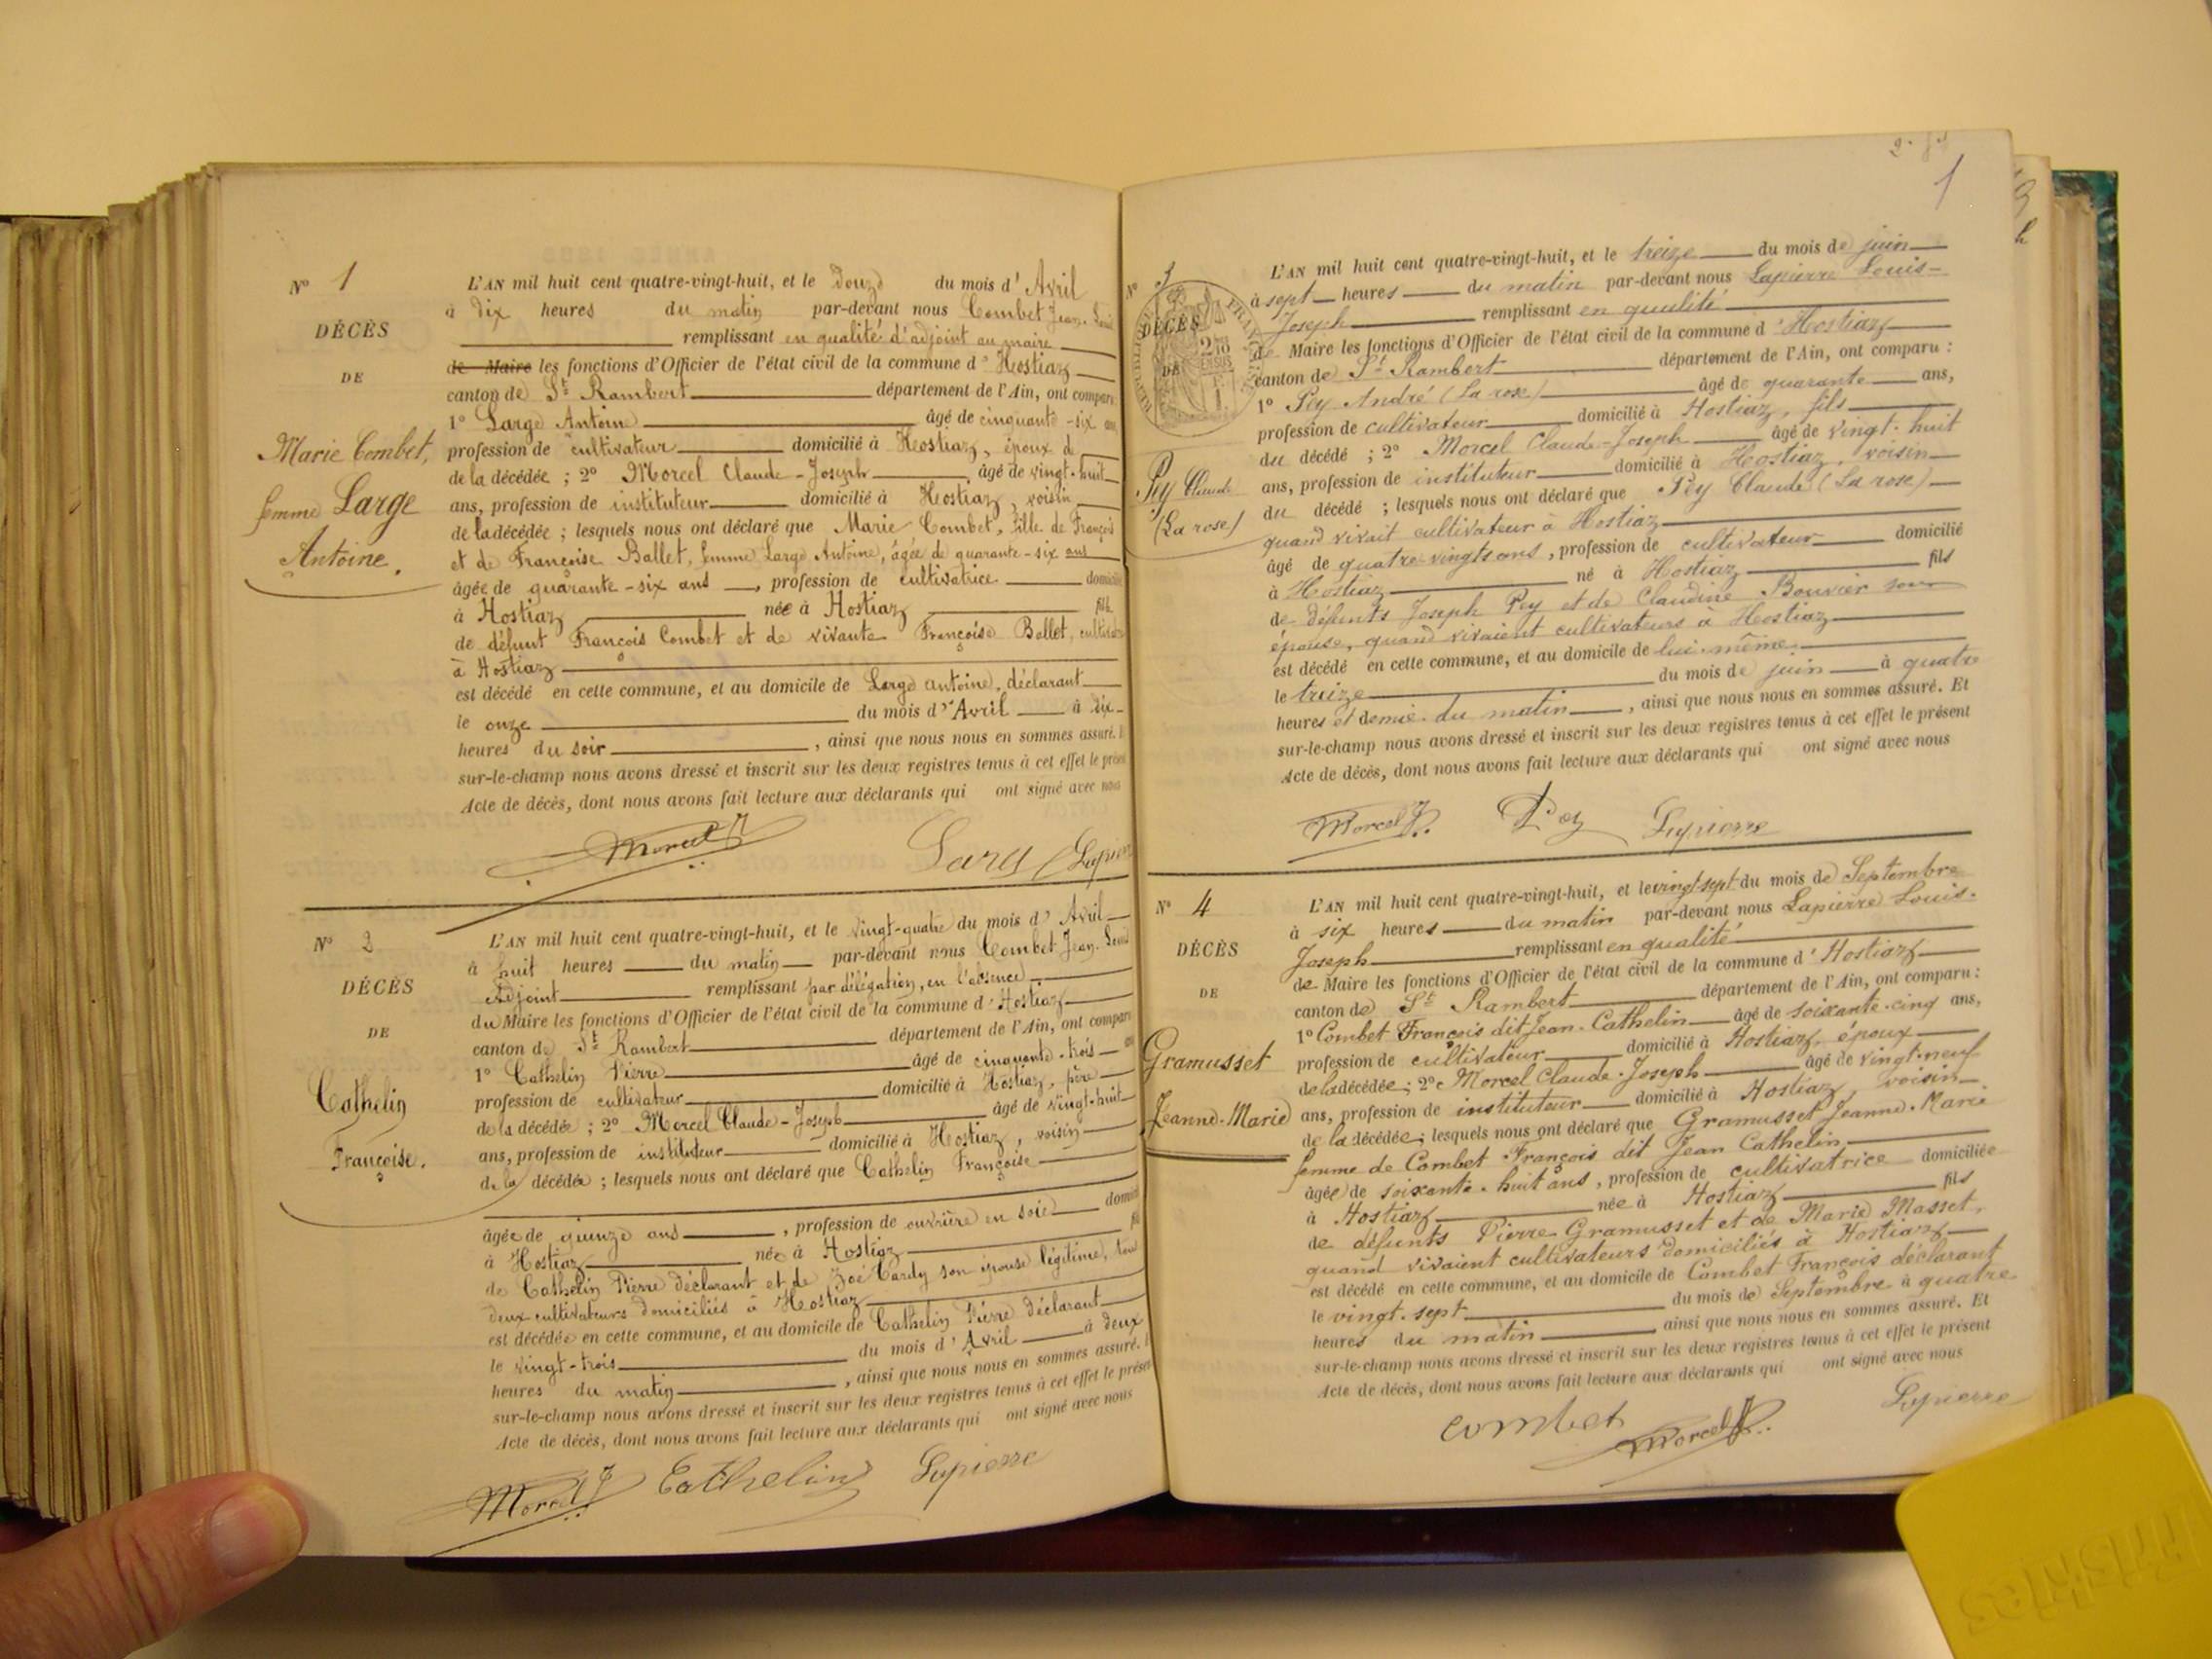 N° 1
DÉCÈS
DE
Marie Combet,
femme Large
Antoine.
L'AN mil huit cent quatre-vingt-huit, et le douze du mois d' Avril
à dix heures du matin par-devant nous Combet Jean-Louis
remplissant en qualité d'adjoint au maire
de Maire les fonctions d'Officier de l'état civil de la commune d' Hostiaz
canton de St Rambert département de l'Ain, ont comparu
1° Large Antoine âgé de cinquante-six ans
profession de cultivateur domicilié à Hostiaz, époux de
de la décédée ; 2° Morcel Claude-Joseph âgé de vingt-huit
ans, profession de instituteur domicilié à Hostiaz, voisin
de la décédée ; lesquels nous ont déclaré que Marie Combet, fille de François
et de Françoise Ballet, femme Large Antoine, âgée de quarante-six ans
âgée de quarante-six ans, profession de cultivatrice domicilié
à Hostiaz née à Hostiaz fille
de défunt François Combet et de vivante Françoise Ballet,
à Hostiaz
est décédé en cette commune, et au domicile de Large Antoine, déclarant
le onze du mois d' Avril à dix
heures du soir, ainsi que nous nous en sommes assuré.
sur-le-champ nous avons dressé et inscrit sur les deux registres tenus à cet effet le présent
Acte de décès, dont nous avons fait lecture aux déclarants qui ont signé avec nous
Morcel J Large Lapierre
N° 2
DÉCÈS
DE
Cathelin
Françoise.
L'AN mil huit cent quatre-vingt-huit, et le vingt-quatre du mois d' Avril
à huit heures du matin par-devant nous Combet Jean-Louis
Adjoint remplissant par délégation, en l'absence
du Maire les fonctions d'Officier de l'état civil de la commune d' Hostiaz
canton de St Rambert département de l'Ain, ont comparu
1° Cathelin Pierre âgé de cinquante-trois
profession de cultivateur domicilié à Hostiaz, père
de la décédée ; 2° Morcel Claude-Joseph âgé de vingt-huit
ans, profession de instituteur domicilié à Hostiaz, voisin
de la décédée ; lesquels nous ont déclaré que Cathelin Françoise
âgée de quinze ans, profession de ouvrière en soie domicilié
à Hostiaz née à Hostiaz
de Cathelin Pierre déclarant et de Zoé Cardy son épouse légitime, tous
deux cultivateurs domiciliés à Hostiaz
est décédée en cette commune, et au domicile de Cathelin Pierre déclarant
le vingt-trois du mois d' Avril à deux
heures du matin, ainsi que nous nous en sommes assuré.
sur-le-champ nous avons dressé et inscrit sur les deux registres tenus à cet effet le présent
Acte de décès, dont nous avons fait lecture aux déclarants qui ont signé avec nous
Morcel J Cathelin Lapierre
1
N° 3
DÉCÈS
DE
Pey Claude
(La rose)
L'AN mil huit cent quatre-vingt-huit, et le treize du mois de juin
à sept heures du matin par-devant nous Lapierre Louis-
Joseph remplissant en qualité
de Maire les fonctions d'Officier de l'état civil de la commune d' Hostiaz
canton de St Rambert département de l'Ain, ont comparu :
1° Pey André (La rose) âgé de quarante ans,
profession de cultivateur domicilié à Hostiaz, fils
du décédé ; 2° Morcel Claude-Joseph âgé de vingt-huit
ans, profession de instituteur domicilié à Hostiaz, voisin
du décédé ; lesquels nous ont déclaré que Pey Claude (La rose)
quand vivait cultivateur à Hostiaz
âgé de quatre-vingts ans, profession de cultivateur domicilié
à Hostiaz né à Hostiaz fils
de défunts Joseph Pey et de Claudine Bouvier son
épouse, quand vivaient cultivateurs à Hostiaz
est décédé en cette commune, et au domicile de lui-même
le treize du mois de juin à quatre
heures et demie du matin, ainsi que nous nous en sommes assuré. Et
sur-le-champ nous avons dressé et inscrit sur les deux registres tenus à cet effet le présent
Acte de décès, dont nous avons fait lecture aux déclarants qui ont signé avec nous
Morcel J. Pey Lapierre
N° 4
DÉCÈS
DE
Gramusset
Jeanne-Marie
L'AN mil huit cent quatre-vingt-huit, et le vingt sept du mois de Septembre
à six heures du matin par-devant nous Lapierre Louis-
Joseph remplissant en qualité
de Maire les fonctions d'Officier de l'état civil de la commune d' Hostiaz
canton de St Rambert département de l'Ain, ont comparu :
1° Combet François dit Jean-Cathelin âgé de soixante-cinq ans,
profession de cultivateur domicilié à Hostiaz, époux
de la décédée ; 2° Morcel Claude-Joseph âgé de vingt-neuf
ans, profession de instituteur domicilié à Hostiaz, voisin
de la décédée ; lesquels nous ont déclaré que Gramusset Jeanne-Marie
femme de Combet François dit Jean Cathelin
âgée de soixante-huit ans, profession de cultivatrice domiciliée
à Hostiaz née à Hostiaz fils
de défunts Pierre Gramusset et de Marie Masset,
quand vivaient cultivateurs domiciliés à Hostiaz
est décédé en cette commune, et au domicile de Combet François déclarant
le vingt-sept du mois de Septembre à quatre
heures du matin ainsi que nous nous en sommes assuré. Et
sur-le-champ nous avons dressé et inscrit sur les deux registres tenus à cet effet le présent
Acte de décès, dont nous avons fait lecture aux déclarants qui ont signé avec nous
combet Morcel J. Lapierre
friskies